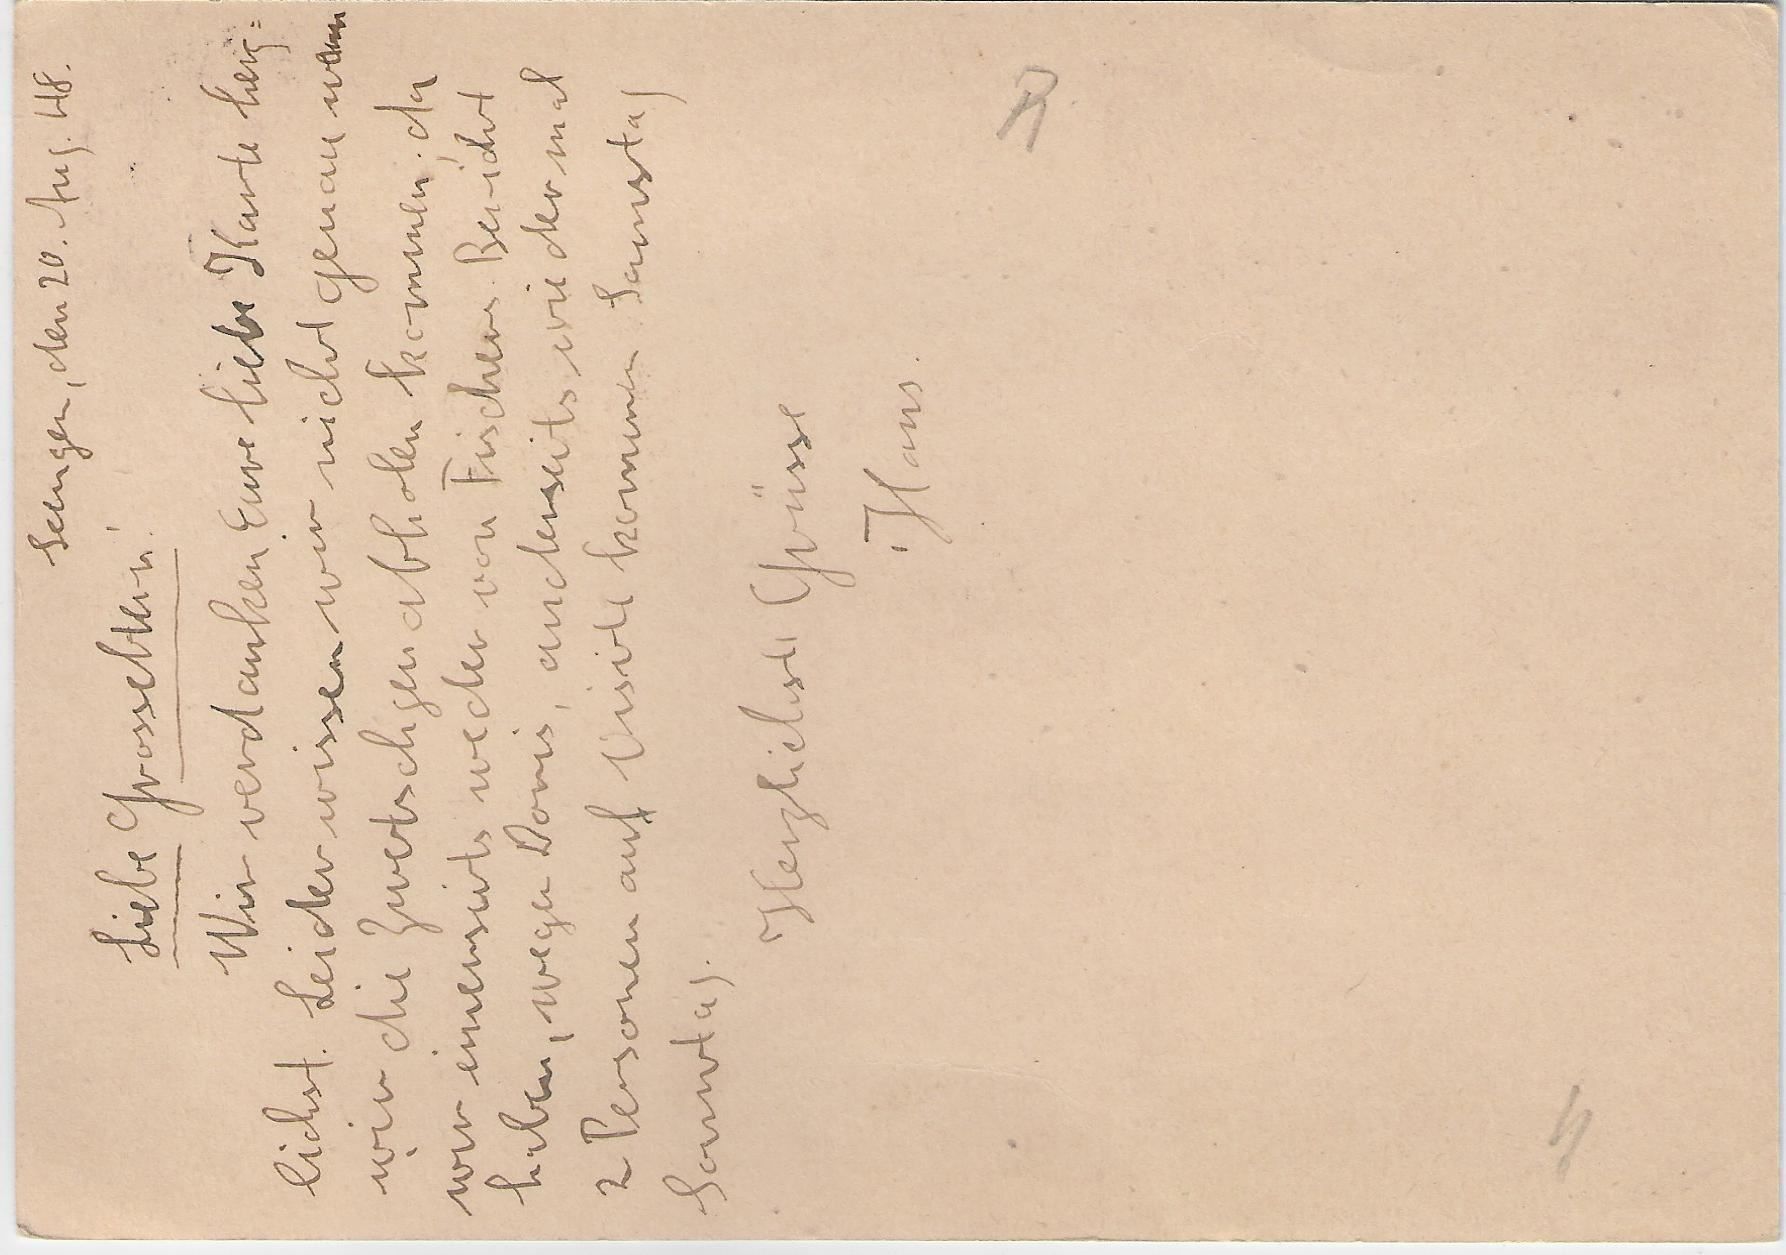 Seengen, den 20. Aug. 48.
Liebe Grosseltern!
Wir verdanken Eure liebe Karte herz=
lichst. Leider wissen wir nicht genau wann
wir die Zwetschgen abholen kommen, da
wir einerseits weder von Fischers Bericht
haben, wegen Doris, anderseits wieder mal
2 Personen auf Visite kommen Samstag
Sonntag.
Herzlichste Grüsse
Hans.
R